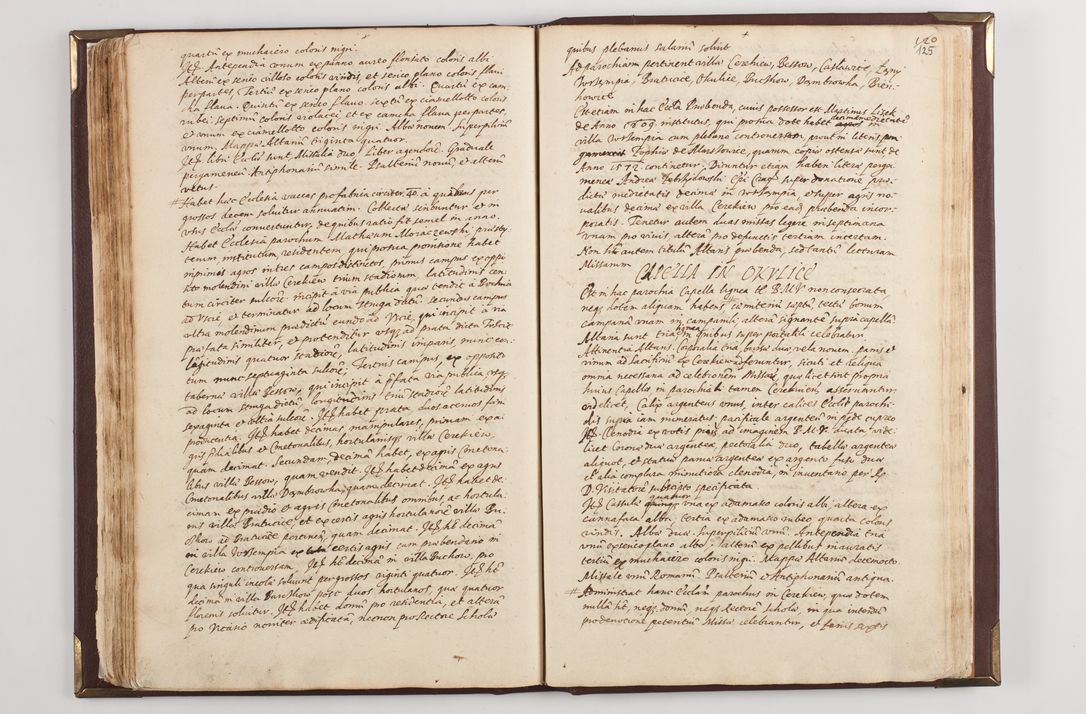 quartũ ex muchaiero coloris nigri.
Itẽ Antependia unum ex panno aureo floritato coloris albi
Alterũ ex serico villoso coloris viridis, et serico plano coloris flavi
per partes. Tertiũ ex serico plano coloris albi. Quartũ ex cam
cha flava. Quintũ ex serico flavo. sextũ ex ciamelletto coloris
rubei septimũ coloris violacei et ex camcha flava per partes,
et unum ex ciamellotto coloris nigri. Alba novem. Superpiliciũ
unum. Mappa Altariũ viginta quatuor.
Itẽ libri Ecclie sunt Missalia duo. Liber agendorũ. Graduale
pergameneũ Antiphonariũ simile. Psalteriũ novũ et alterũ
vetus.
Habet hæc Ecclesia vaccas pro fabrica circiter 40. à quibus per
grossos decem solvitur annuatim. Collecta servuntur et in
usus Ecclesiæ convertuntur, de quibus ratio fit semel in anno.
Habet Ecclesia parochum Mathæum Moraczewski, præsby
terum institutum, residentem qui pro sua provisione habet
inprimis agros in tres campos distinctos, primus campus ex oppo
sito molendini villæ Cerekiew trium stadiorum latitudinis cen
tum circiter sulcorũ incipit à via publica quæ tendit à Bochnia
ad Uscie et terminatur ad locum Struga dictũ, secundus campus
ultra molendinum prædictũ eundo ad Uscie, qui incipit à via
præfata similiter, et protenditur usq; ad prata dicta
longitudinis quatuor stadiorũ, latitudinis imparis, nunc cen
tum nunc septuaginta sulcorũ, Tertius campus, ex opposito
tabernæ villæ Bessow, qui incipit à præfata via publica usq;
ad locum struga dictũ longitudinis triũ stadiorũ latitudinis
sexaginta et ultra sulcorũ. Itẽ habet prata duos acervos fœni
producentia. Itẽ habet decimas manipulares, primam ex a
gris prædialibus et Cmetonalibus, hortulanisq; villæ Cerekiew,
quam decimat. Secundam decimã habet, ex agris Cmetona
libus villæ Bessow, quam vendit. Itẽ habet decimã ex agris
Cmetonalibus villæ Dąmbrowka, quam decimat. Itẽ habet de
cimam ex prædio et agris Cmetonalibus omnibus, ac hortula
nis villæ Bratucice, et ex certis agris hortulanorũ villæ
Okow ad Bratucice pertinen, quam decimat. Itẽ hẽt decimã
in villa Wrsempia certis agris cum præbendario in
Cerekiew controversam. Itẽ hẽt decimã in villa Buczkow, pro
qua singuli incolæ solvunt per grossos viginti quatuor. Itẽ hẽt
decimã in villa Buczkow post duos hortulanos, qua quatuor
florenis solvitur. Itẽ habet domũ pro residentia, et alterã
pro Vicario noviter ædificatã, necnon pro Rectore Scholæ
120
125
quibus plebanus salariũ solvit
Ad parochiam pertinent villæ Cerekiew, Bessow,
Wrsempia, Bratucice, Okulice, Buczkow, Dąmbrowka, Bien-
kowice
Est etiam in hac Ecclia Præbenda, cuius possessor est Martinus Lisek
de Anno 1609 institutus, qui pro sua dote habet decimam medietatẽ in
villa Wrsempia cum plebano controversam, prout in literis
Sophiæ de Marskovice, quarum copia ostensa sunt de
Anno 1572. continetur, Dicuntur etiam haberi literæ perga
menea Andreæ Epi Crac. super donatione præ-
dictæ medietatis decimæ in Wrsempia et super agris no-
valibus decimæ ex villa Cerekiew pro ead præbenda incor-
poratis. Tenetur autem duas missas legere in septimana
unam pro vivis, alteram pro defunctis tertiam incertam.
Non hẽt autem titulũ Altaris præbenda, sed tantũ lecturam
Missarum
CAPELLA IN OKULICE
Est in hac parochia Capella lignea tł B.M.V. non consecrata,
neq; dotem aliquam habens, cœmiteriũ septũ, tectũ bonum
campanã unam in campanili, altera signante supra capellã
Altaria sunt tria lignea, in quibus super portatili celebratur.
Attinentia Altaris. Corporalia tria, bursa duo, vela novem, panis et
vinum ad Sacrificiũ ex Cerekiew adferuntur, sicuti et reliqua
omnia necessaria ad celebrationẽ Missæ, quæ licet sint propria
huius Capellæ in parochiali tamen Cerekiew, asservantur
videlicet, Calix argenteus unus, inter calices Ecclie parochi-
alis supra iam numeratus, pacificale argenteũ in pede cupreo
Itẽ Clenodia ex votis pijs ad imaginem B.M.V. ducta vide-
licet Corona dua argentea, pectoralia duo, tabella argentea
aliquot, et statua parva argentea ex argento fuso dua
et alia complura minutiora clenodia, in inventario per R.
D. Visitatorẽ subscripto specificata
Itẽ Casulæ quatuor una ex adamasco coloris albi, altera ex
cannafata alba, tertia ex adamasco rubeo quarta coloris
viridis. Albæ duo. Superpiliciũ unũ. Antependia tria
unũ ex serico plano albo, alterũ ex pellibus inauratis
tertiũ ex muchaiero coloris nigri. Mappa Altariũ decemocto.
Missale unũ Romanũ. Psalteriũ et Antiphonariũ antiqua.
Administrat hanc Ecclesiã parochus in Cerekiew, qua dotem
nullã hẽt, neq; domũ, neq; Rectorẽ Scholæ, in qua interdũ
pro devotione petentiũ Missæ celebrantur, et